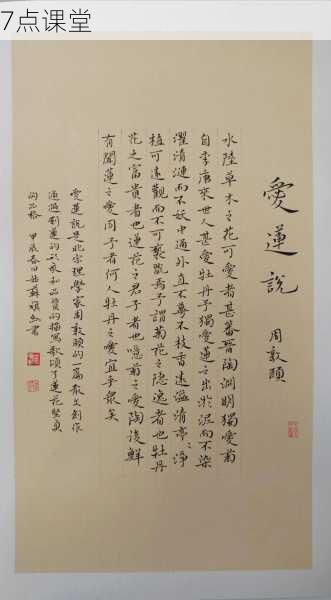 7点课堂
愛蓮説
周敦頤
水陸草木之花可愛者甚蕃晉陶淵明獨愛菊
自李唐來世人甚愛牡丹予獨愛蓮之出淤泥而不染
濯清漣而不妖中通外直不蔓不枝香遠溢清亭〻淨
植可遠觀而不可褻翫焉予謂菊花之隱逸者也牡丹
花之富貴者也蓮花之君子者也噫菊之愛陶後鮮
有聞蓮之愛同予者何人牡丹之愛宜乎衆矣
愛蓮說是北宋理學家周敦頤的一篇散文創作
通過對蓮的形象和品質的描寫歌頌了蓮花堅貞
的品格 甲辰春日 蘇 書